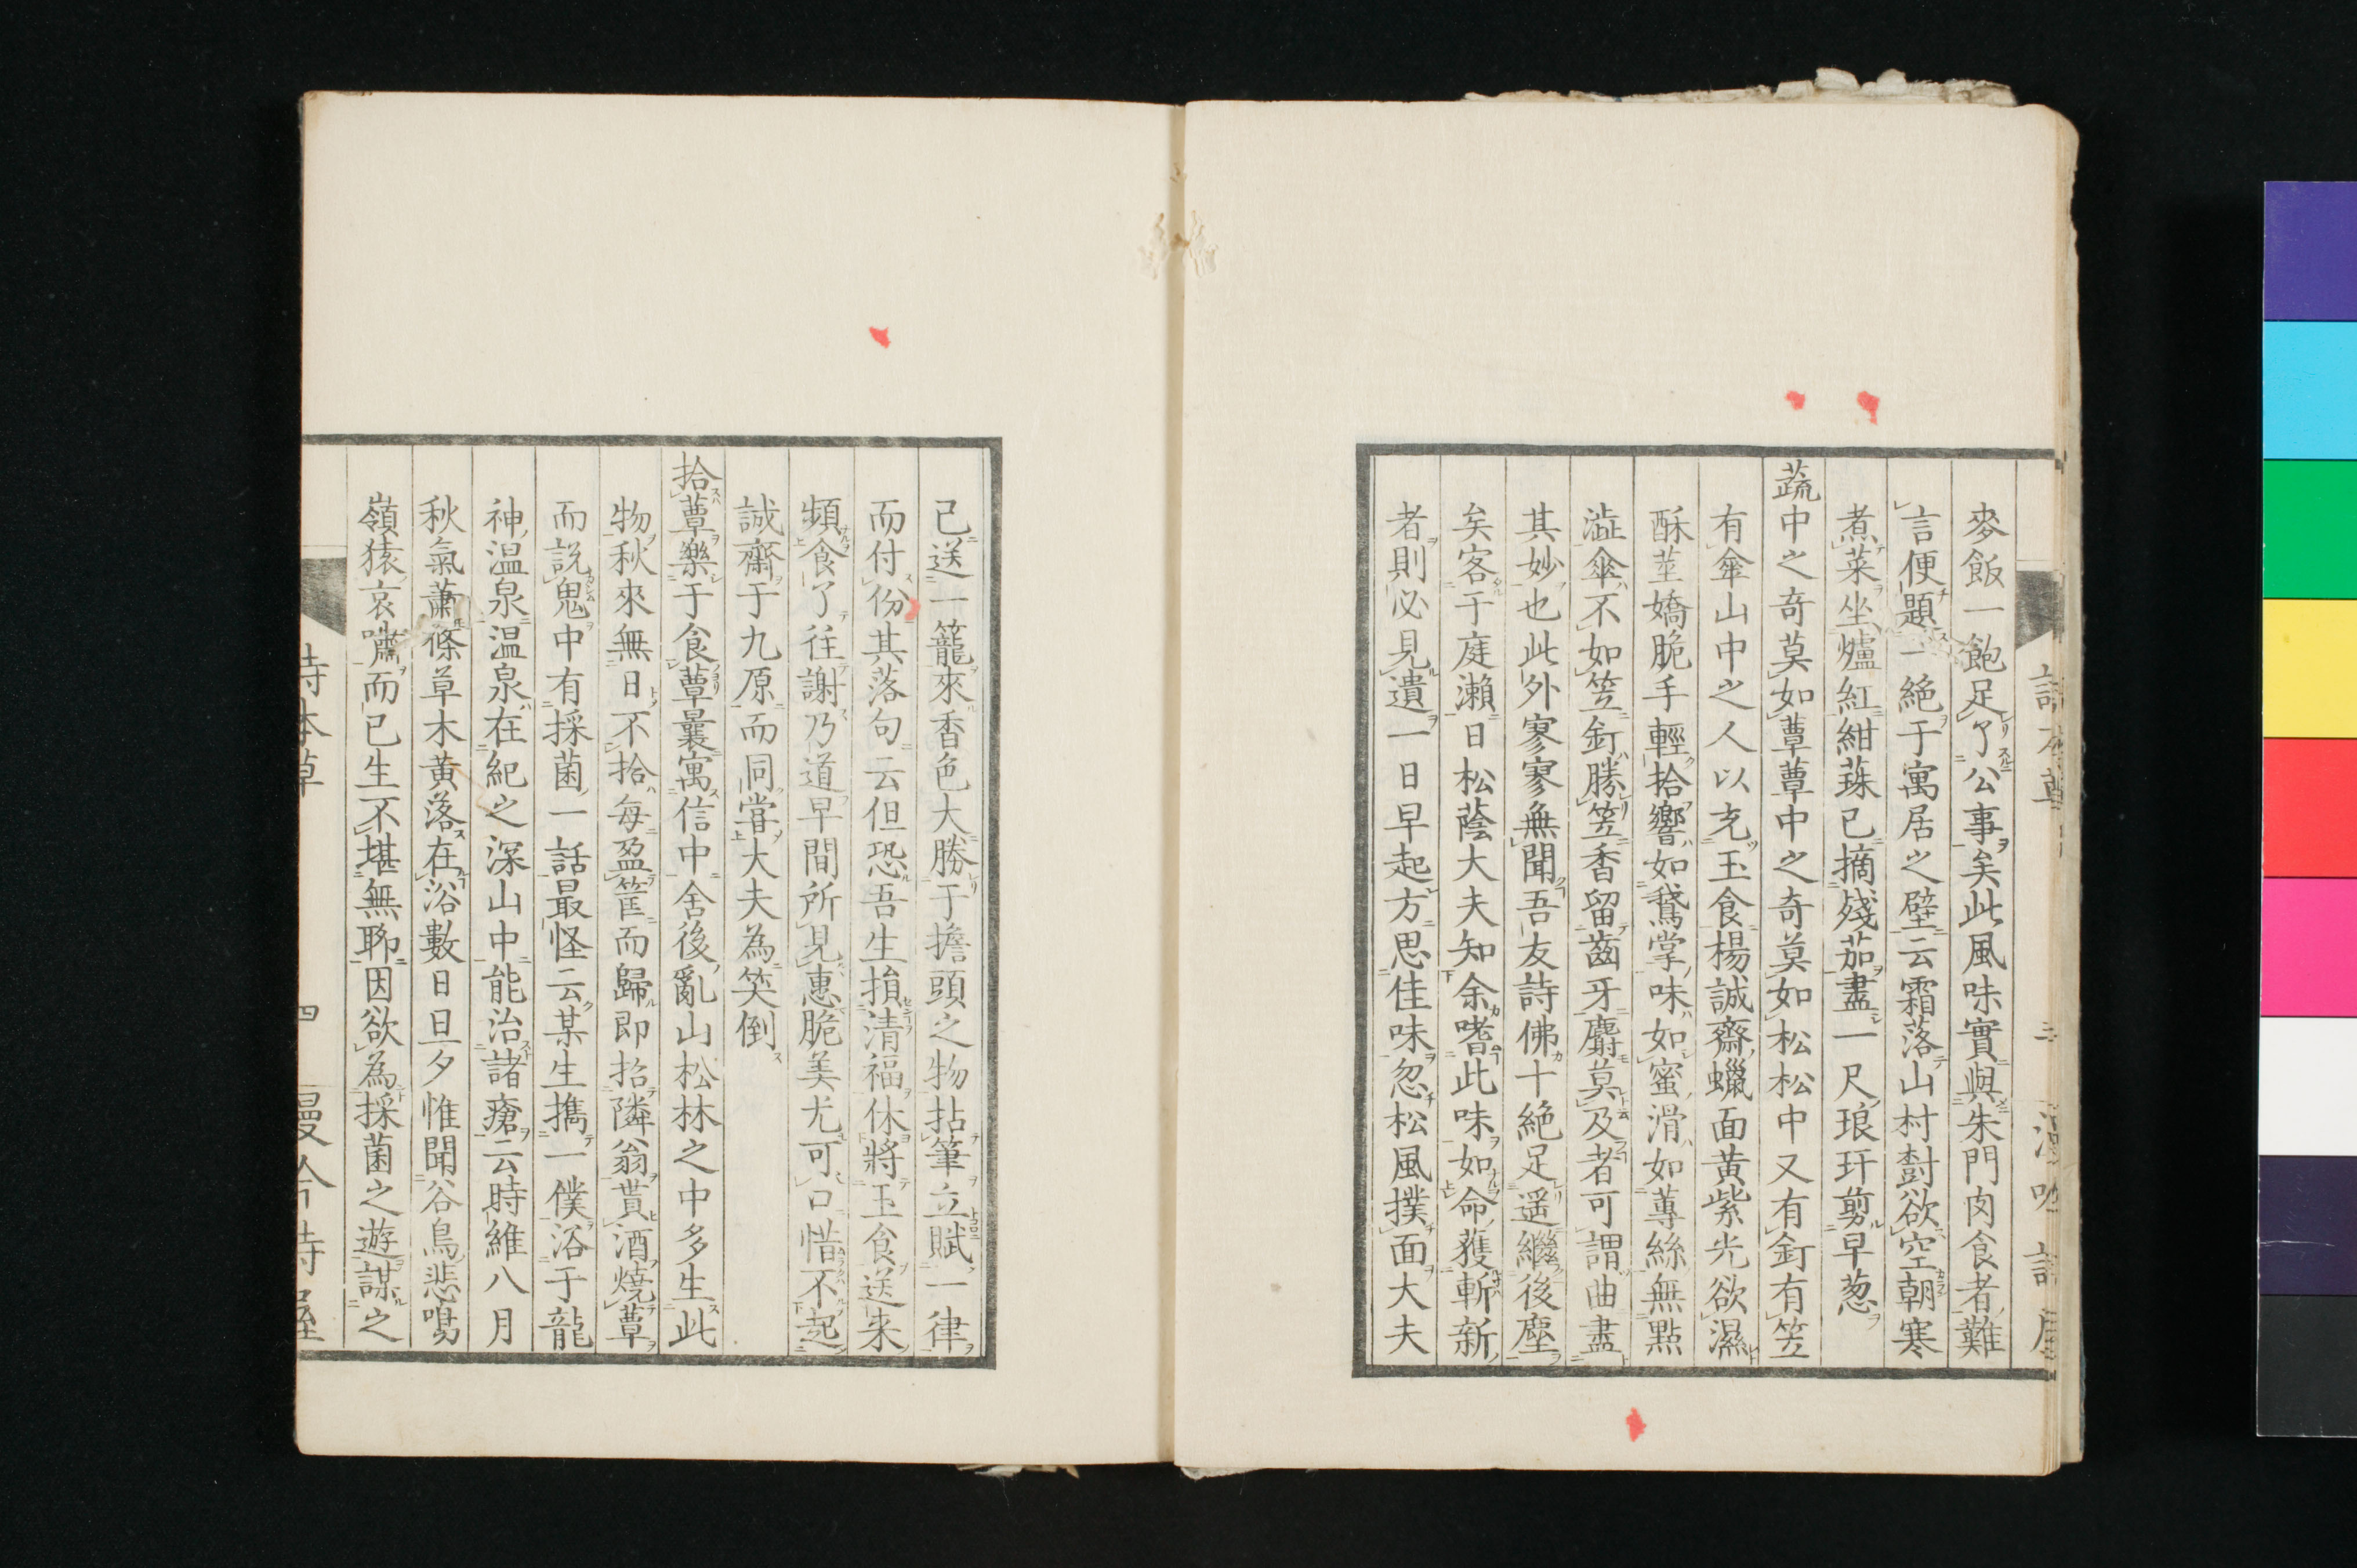 麥飯一飽足了公事矣此風味實與朱門肉食者難
言便題一絶于寓居之壁云霜落山村對欲空朝寒
煮菜坐爐紅紺蔴已摘殘茄盡一尺琅玕剪早葱
蔬中之奇莫如蕈蕈中之奇莫如松松中又有釘有笠
有傘山中之人以充玉食楊誠齋蠟面黄紫光欲濕
酥莖嬌脆手輕拾響如鵞掌味如蜜滑如蓴絲無點
澁傘不如笠釘勝笠香留齒牙麝莫及者可謂曲盡
其妙也此外寥寥無聞吾友詩佛十絶足遥繼後塵
矣客于庭瀬日松蔭大夫知余嗜此味如命獲斬新
者則必見遺一日早起方思佳味忽松風撲面大夫
已送一籠來香色大勝于擔頭之物拈筆立賦一律
而付份其落句云但恐吾生損清福休將玉食送来
頻食了往謝乃道早間所見惠脆美尤可口惜不起
誠齋于九原而同甞大夫為笑倒
拾蕈樂于食蕈曩寓信中舍後亂山松林之中多生此
物秋來無日不拾毎盈筐而歸即招隣翁貰酒燒蕈
而説鬼中有採菌一話最怪云某生擕一僕浴于龍
神温泉温泉在紀之深山中能治諸瘡云時維八月
秋氣蕭條草木黄落在浴數日旦夕惟聞谷鳥悲鳴
嶺猿哀嘯而已生不堪無聊因欲為採菌之遊謀之
詩本草
四